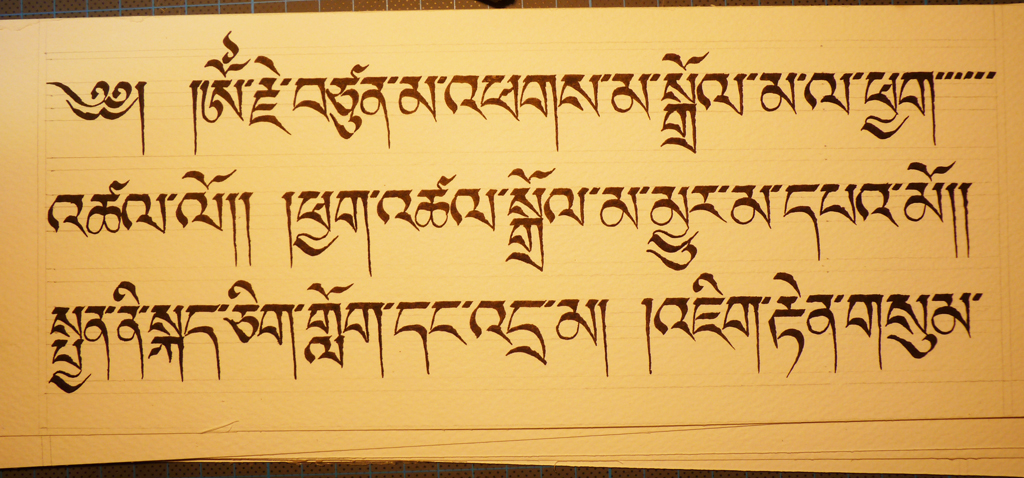 ༄༅།  །ༀ་རྗེ་བཙུན་མ་འཕགས་མ་སྒྲོལ་མ་ལ་ཕྱག་་་་་་
འཚལ་ལོ།།  །ཕྱག་འཚལ་སྒྲོལ་མ་མྱུར་མ་དཔའ་མོ།།
སྤྱན་ནི་སྐད་ཅིག་གློག་དང་འདྲ་མ།  །འཇིག་རྟེན་གསུམ་